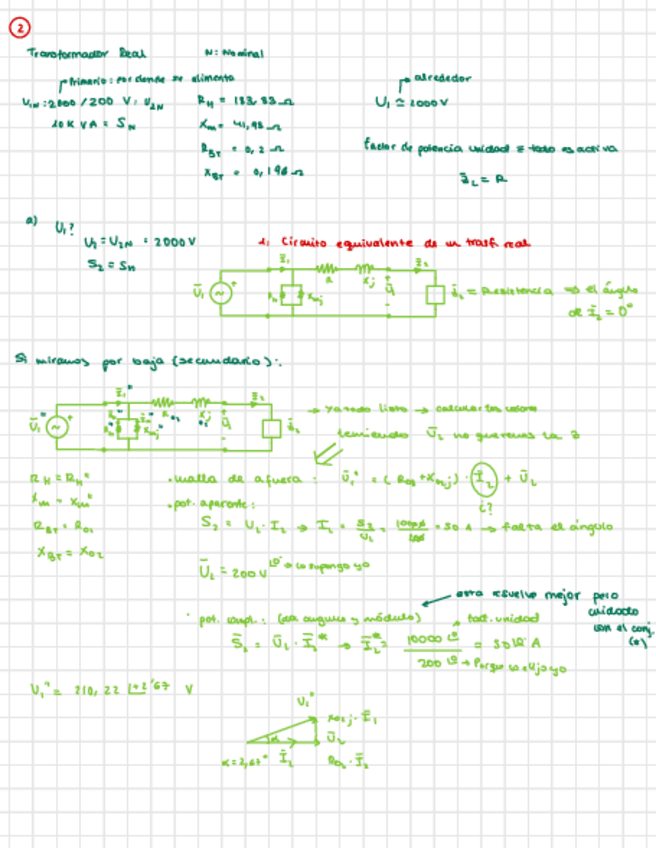 2
Transformador Real N: Nominal
Primario: por donde se alimenta
U1N: 2000/200 V: U2N
10 K VA = SN
Xm = 41,98 Ω
RBT = 0,2 Ω
XBT = 0,196 Ω
alrededor
factor de potencia unidad = todo es activa
Z̄L = R
a) U1?
S2 = Sn
1: Circuito equivalente de un trasf real
= Resistencia ⇒ el ángulo
= 0°
Si miramos por baja (secundario):
→ ya todo listo → calcular los valores
teniendo Ū2 no queremos la
RH = RH"
Xm = Xm"
RBT = R02
XBT = X02
· malla de afuera: Ū1" = (R02 + X02j) · Ī2 + Ū2
¿?
· pot. aparente:
S2 = U2 · I2 → I2 = S2/U2 = = 50 A → falta el ángulo
Ū2 = 200 V → lo supongo yo
esta resuelve mejor pero
cuidado
con el conj.
(*)
· pot. compl.: (da ángulo y módulo)
fact. unidad
S̄2 = Ū2 · Ī2* → Ī2* = 10000 /
200 → Porque lo elijo yo
U1" = 210,22 V
U1"
X02j · Ī2
Ū2
α = 2,67° Ī2 R02 · Ī2